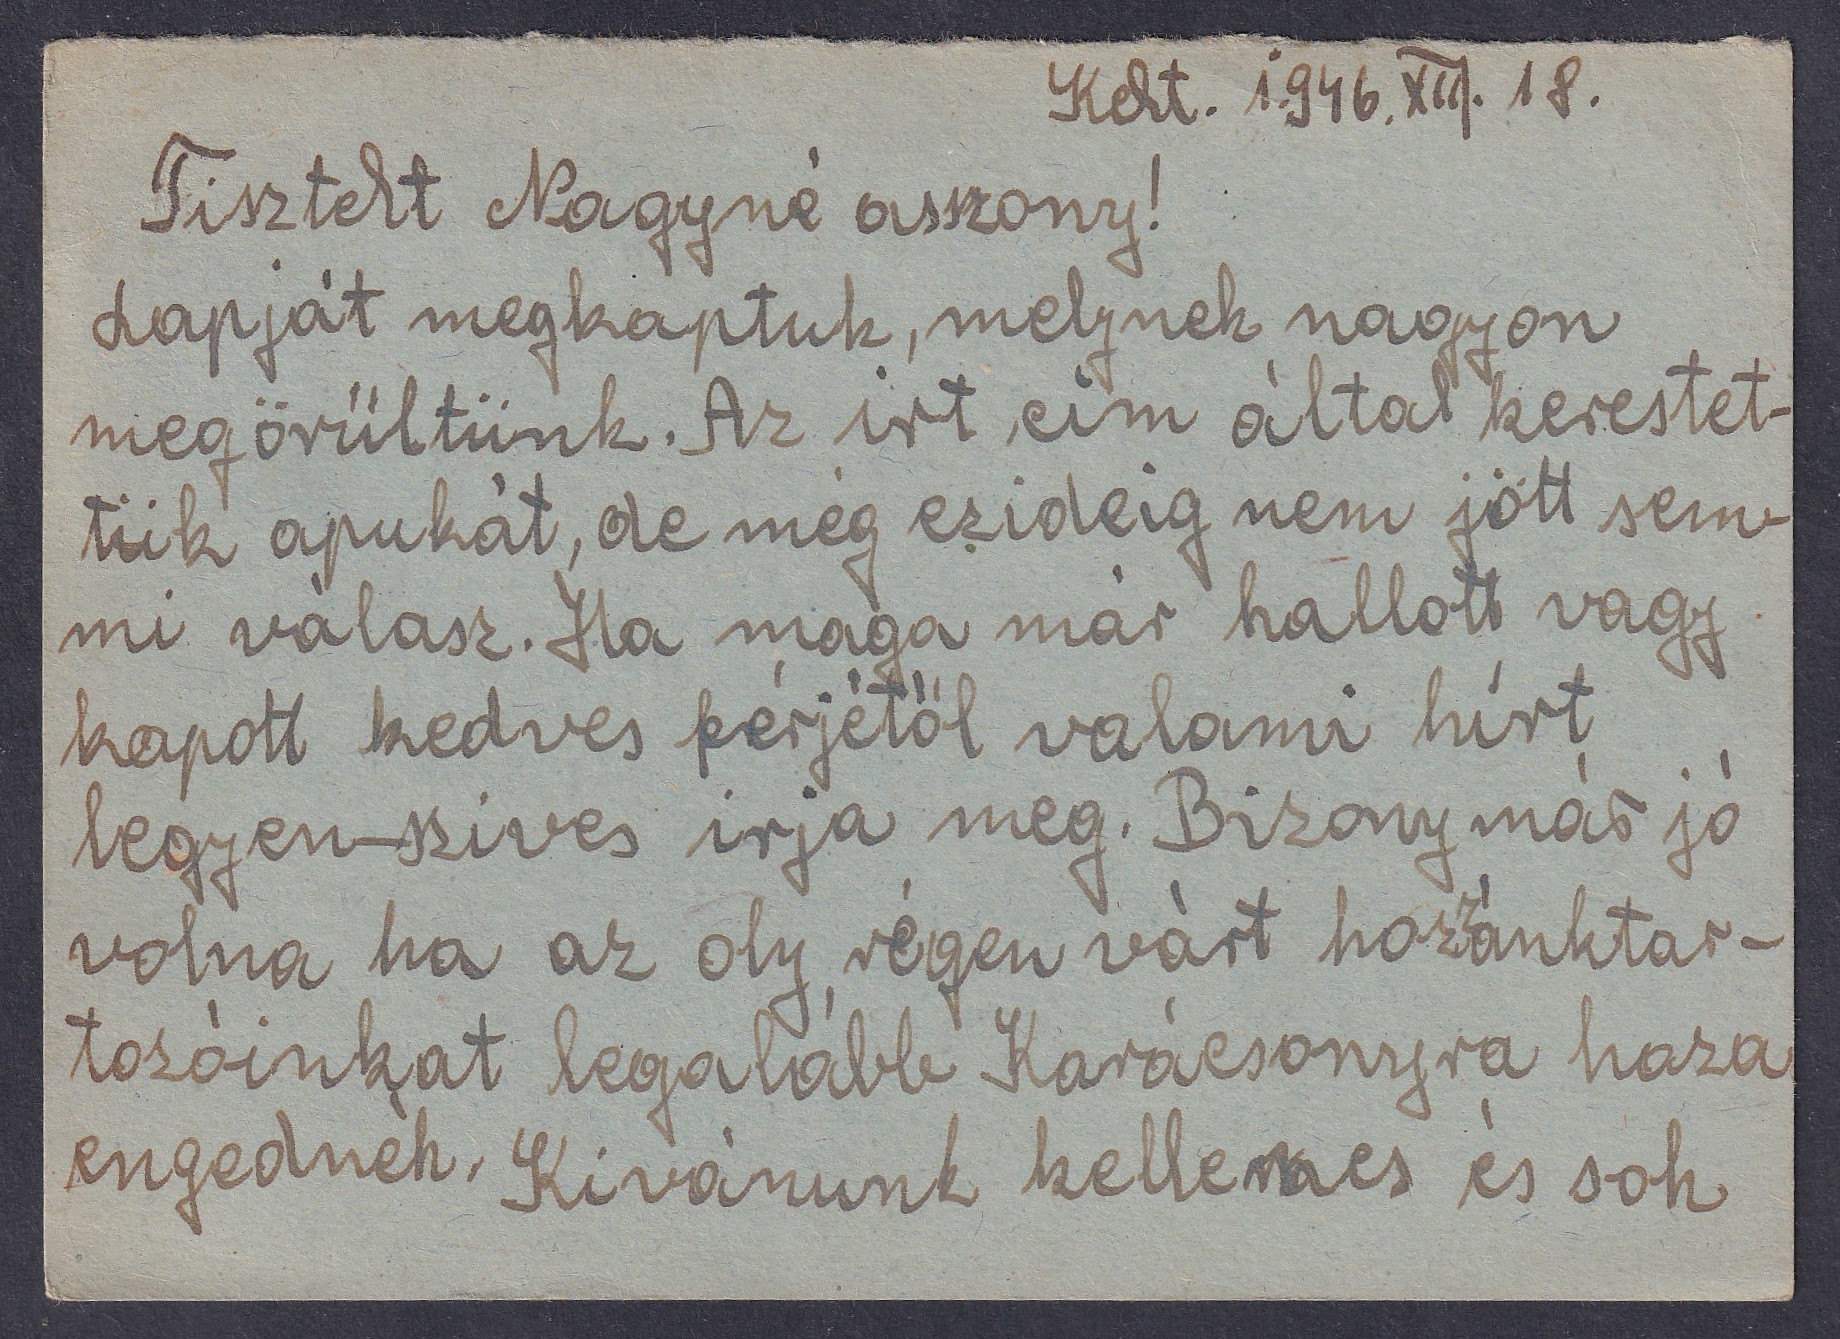 Kelt. 1.946. XII. 18.
Tisztelt Nagyné asszony!
Lapját megkaptuk, melynek nagyon
megörűltünk. Az irt cim által kerestet-
tük apukát, de még ezideig nem jött sem-
mi válasz. Ha maga már hallott vagy
kapott kedves férjétől valami hírt
legyen-szives irja meg. Bizony már jó
volna ha az oly régen várt hozzánktar-
tozóinkat legalább Karácsonyra haza
engednék. Kivánunk kellemes és sok